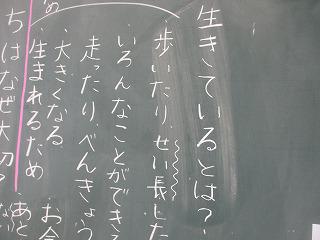 生きているとは?
歩いたり、せい長した
いろんなことができる
走ったり、べんきょう
大きくなる
生まれるため
め
お金
あと
ちはなぜ大切?